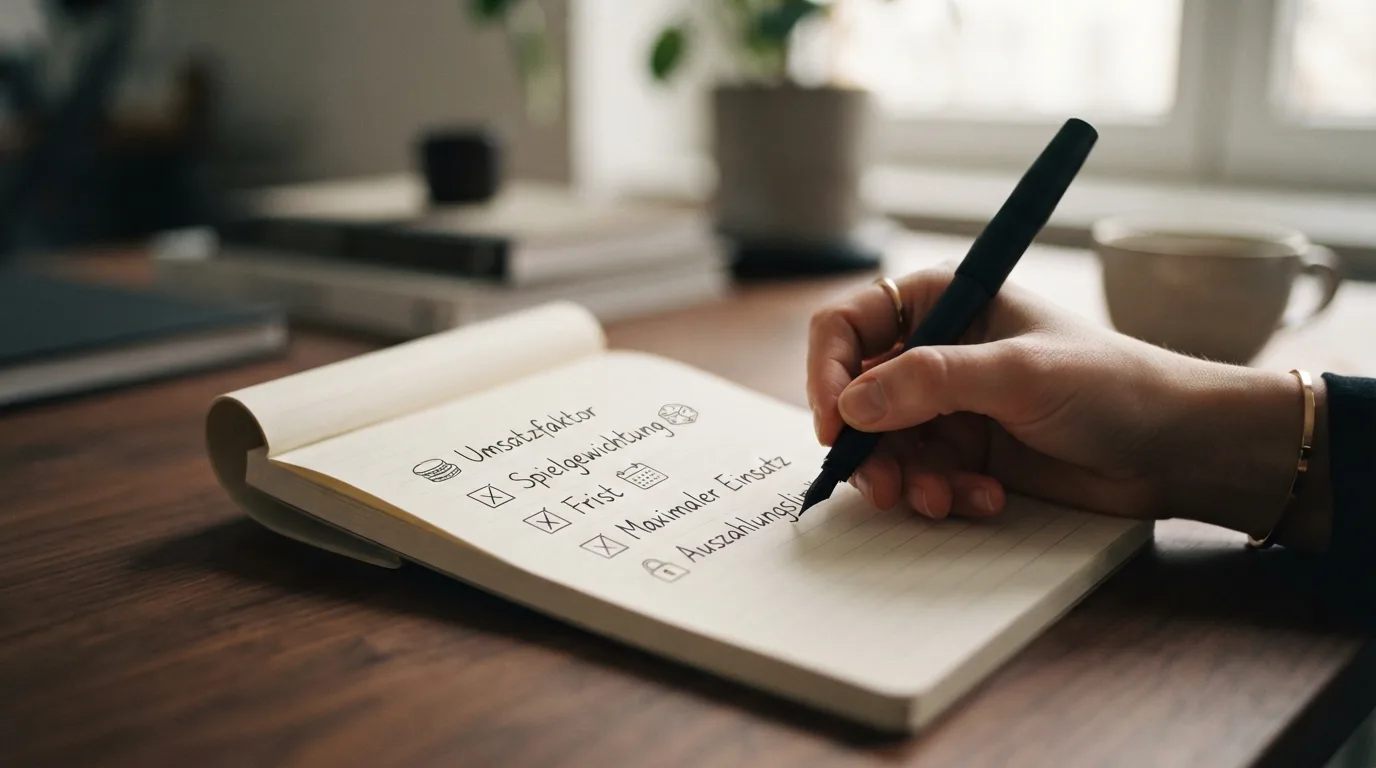 Umsatzfaktor
Spielgewichtung
Frist
Maximaler Einsatz
Auszahlungsli